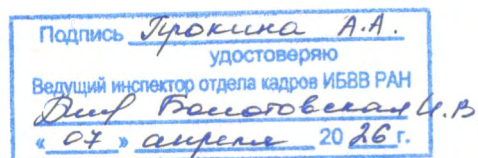 Подпись Прокина А.А.
удостоверяю
Ведущий инспектор отдела кадров ИБВВ РАН
Болотовская И.В
« 07 » апреля 20 26 г.